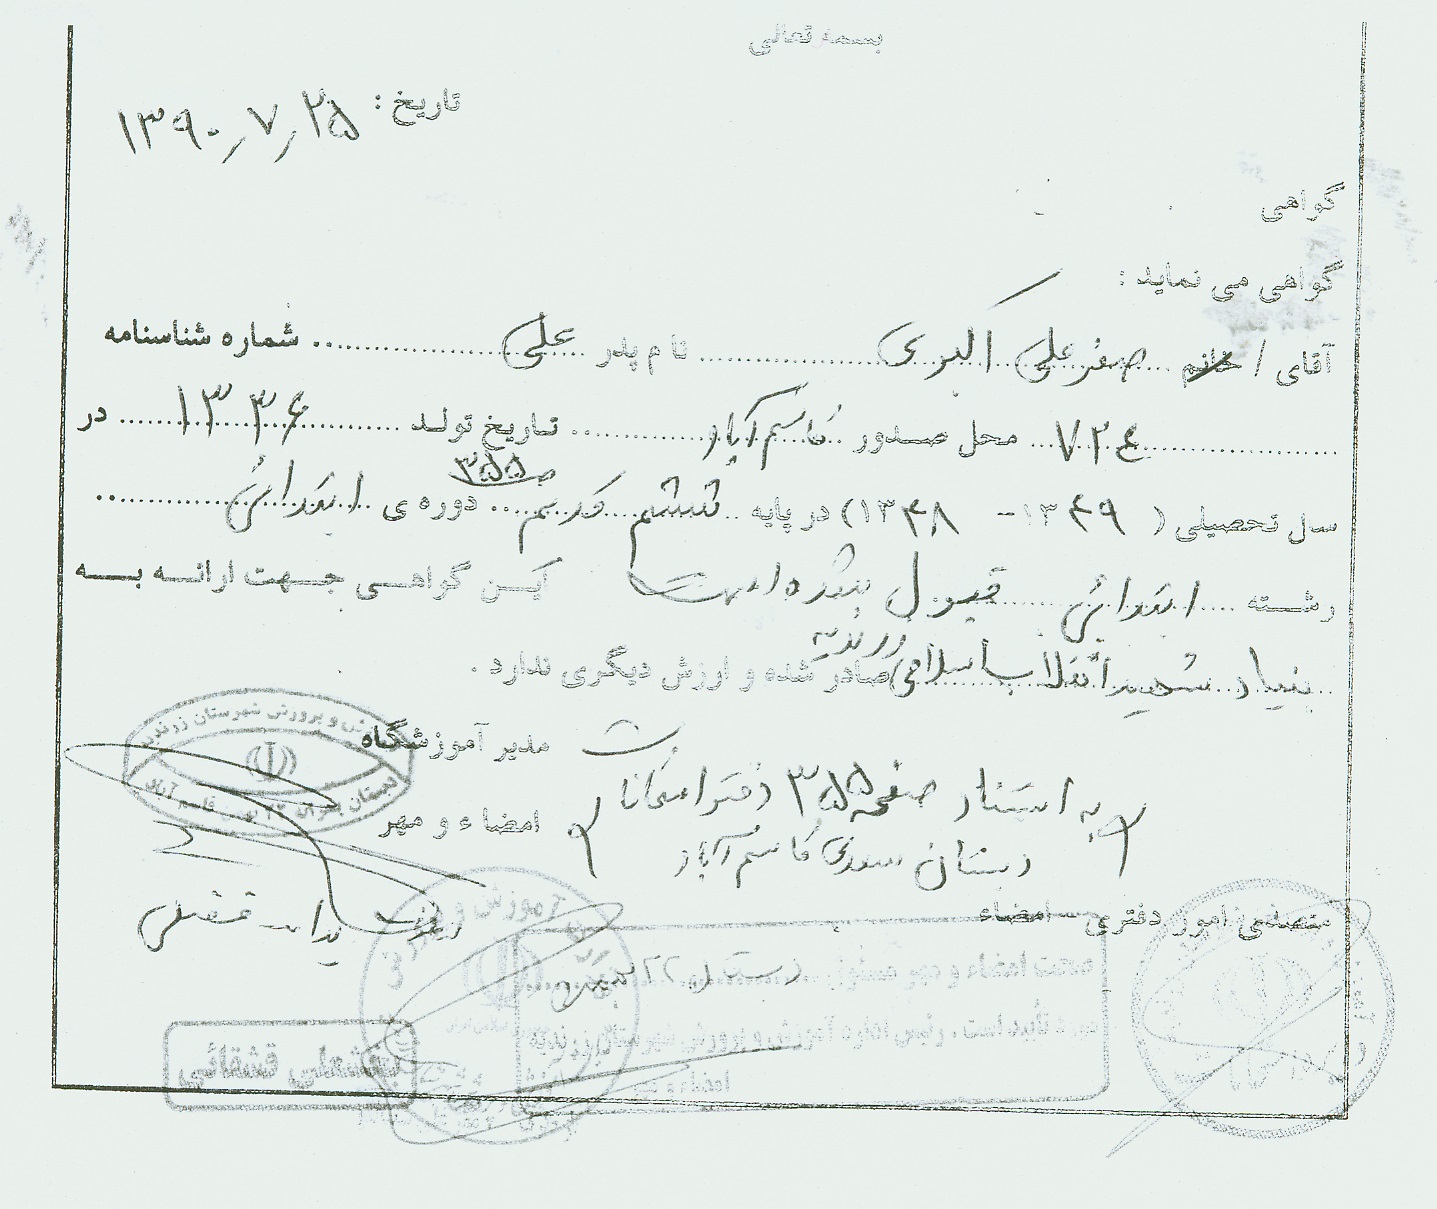 بسمه تعالی
تاریخ : ۱۳۹۰/۷/۲۵
گواهی
گواهی می نماید :
آقای / خانم صفرعلی اکبری نام پدر علی شماره شناسنامه
۷۲۶ محل صدور قاسم آباد تاریخ تولد ۱۳۳۶ در
ص ۳۵۵
سال تحصیلی ( ۱۳۴۹ - ۱۳۴۸ ) در پایه ششم قدیم دوره ی ابتدائی
رشته ابتدائی قبول شده است این گواهی جهت ارائه به
بنیاد شهید انقلاب اسلامی زرندیه صادر شده و ارزش دیگری ندارد .
مدیر آموزشگاه
به استناد صفحه ۳۵۵ دفتر امتحانات
امضاء و مهر
دبستان سعدی قاسم آباد
متصدی امور دفتری امضاء
صحت امضاء و مهر مسئول دبستان ۲۲ بهمن
مورد تأیید است ، رئیس اداره آموزش و پرورش شهرستان زرندیه
امضاء و مهر
قشقائی